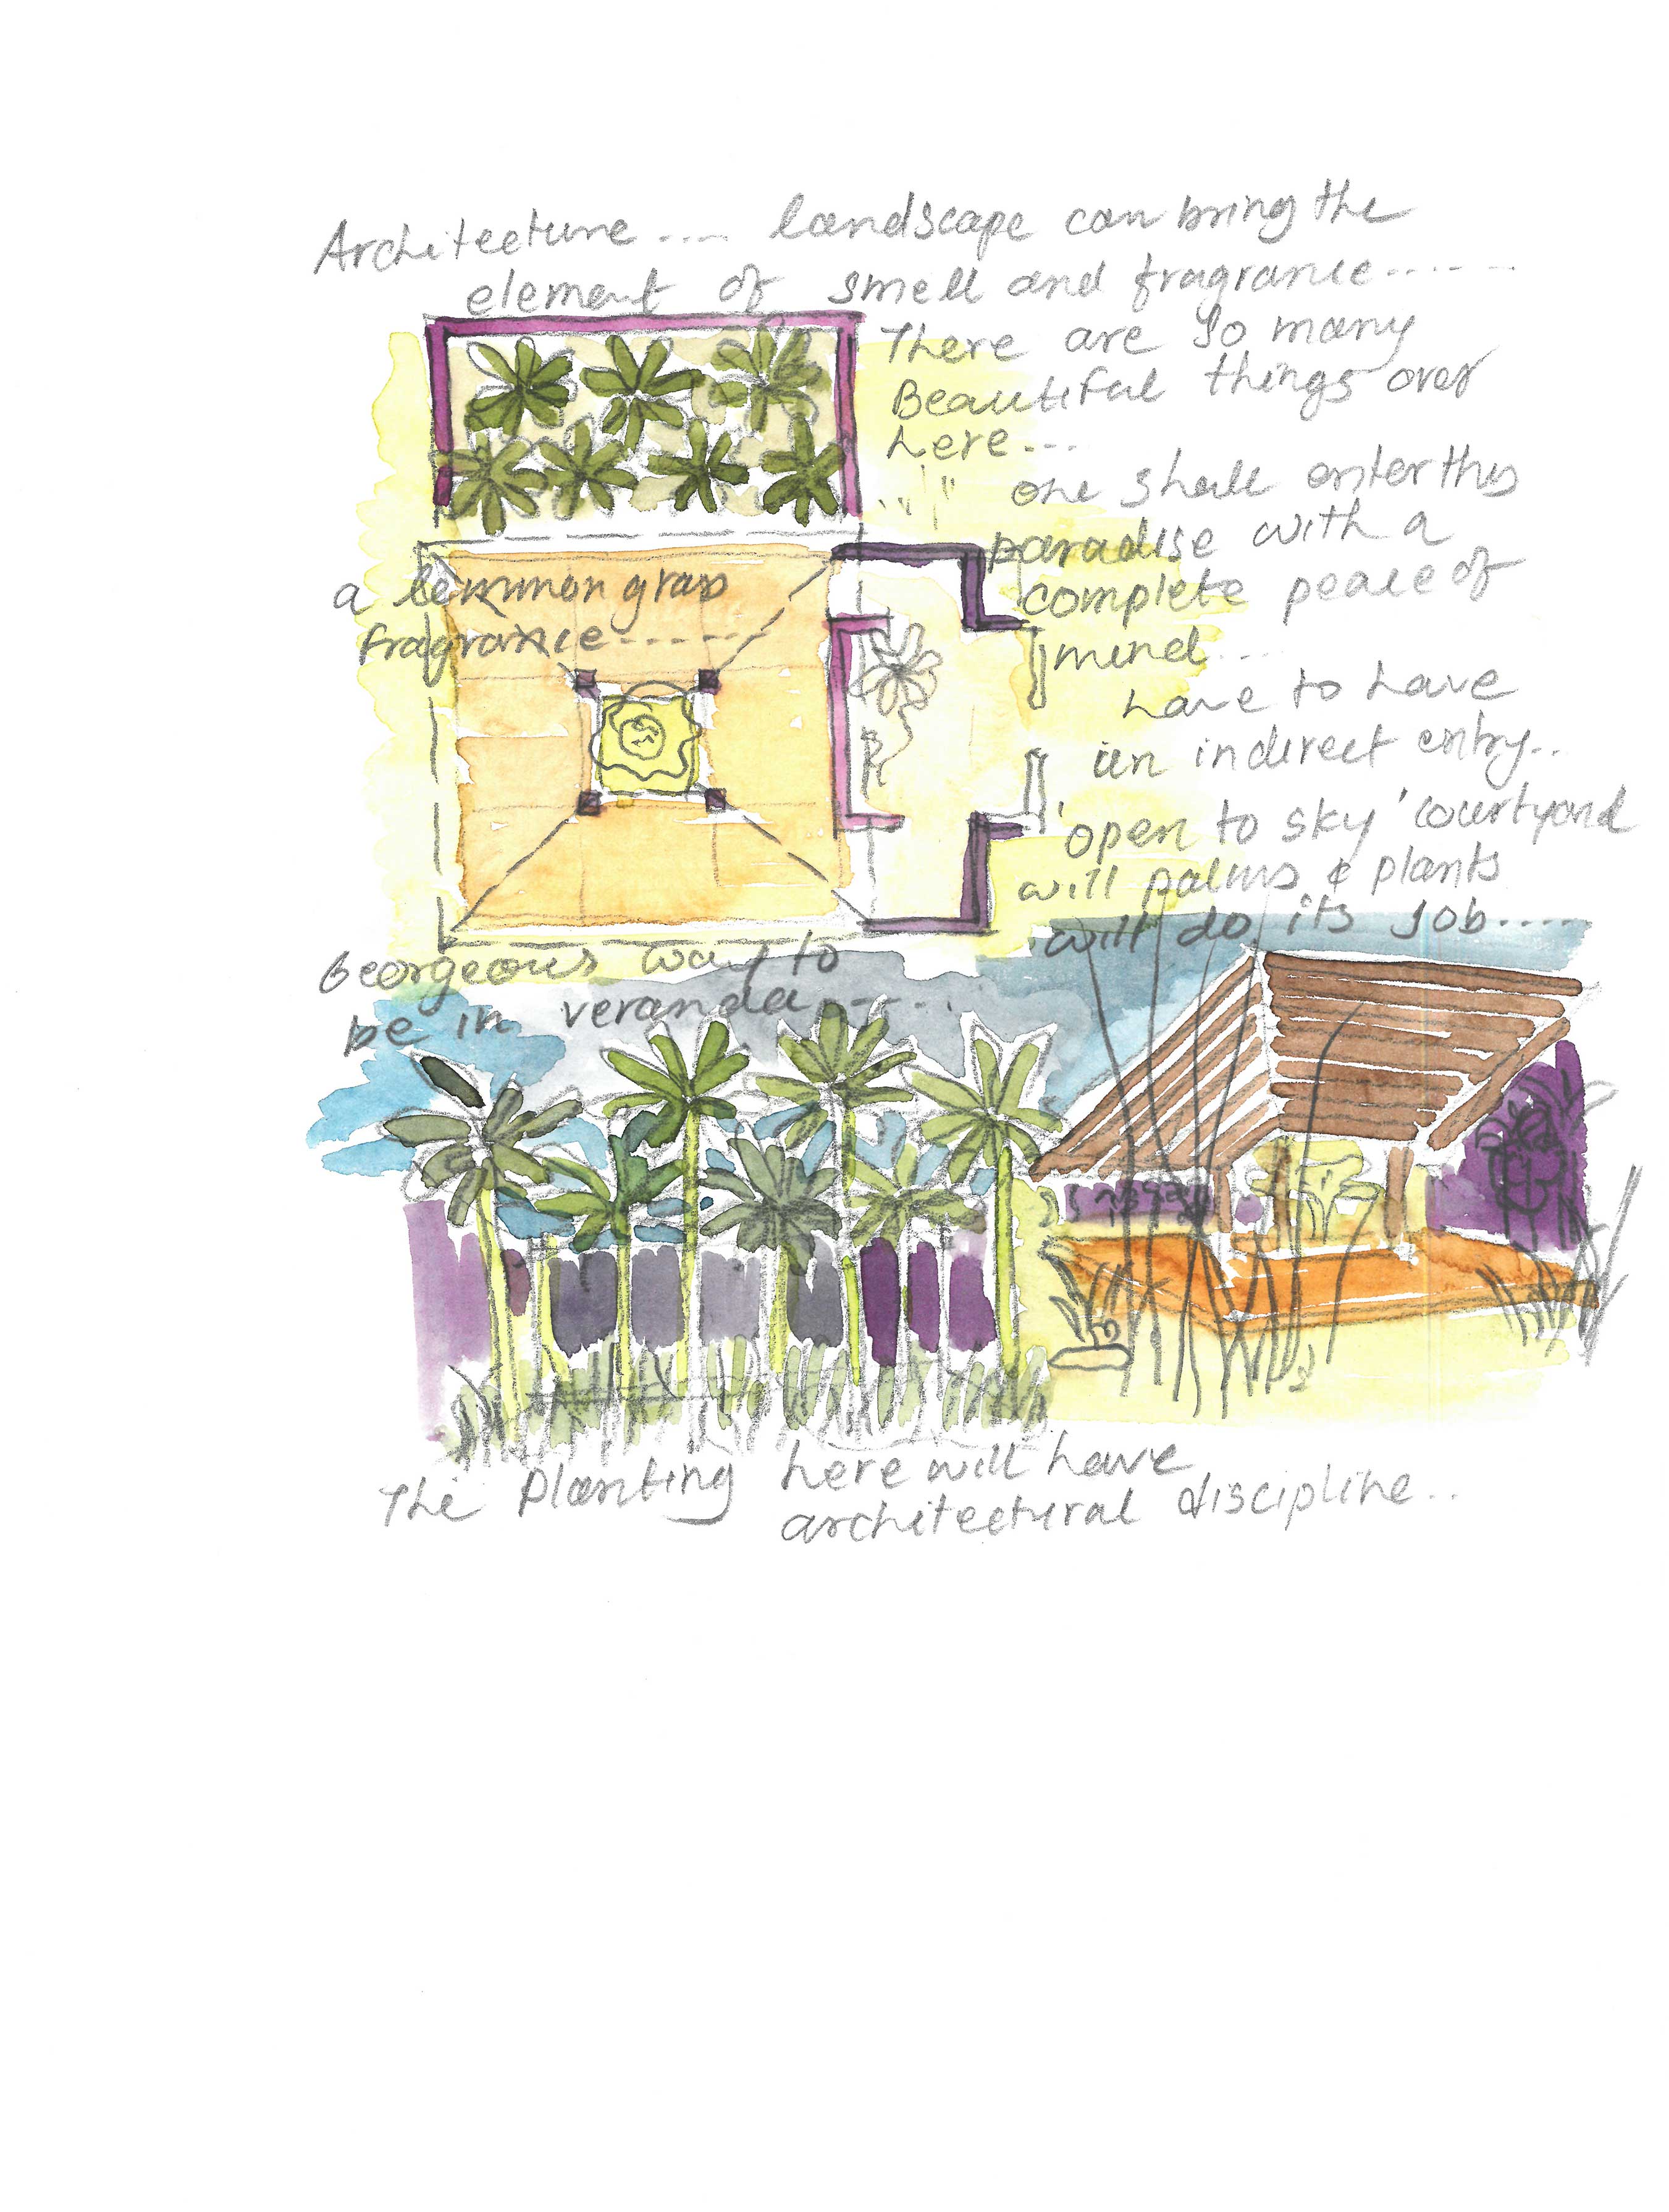 Architecture.... landscape can bring the
element of smell and fragrance......
There are so many
Beautiful things over
here...
one shall enter this
paradise with a
complete peace of
mind...
have to have
an indirect entry..
'open to sky' courtyard
will palms & plants
will do its job....
a lemmon grass
fragrance......
Georgeous way to
be in veranda.....
The planting here will have
architectural discipline..